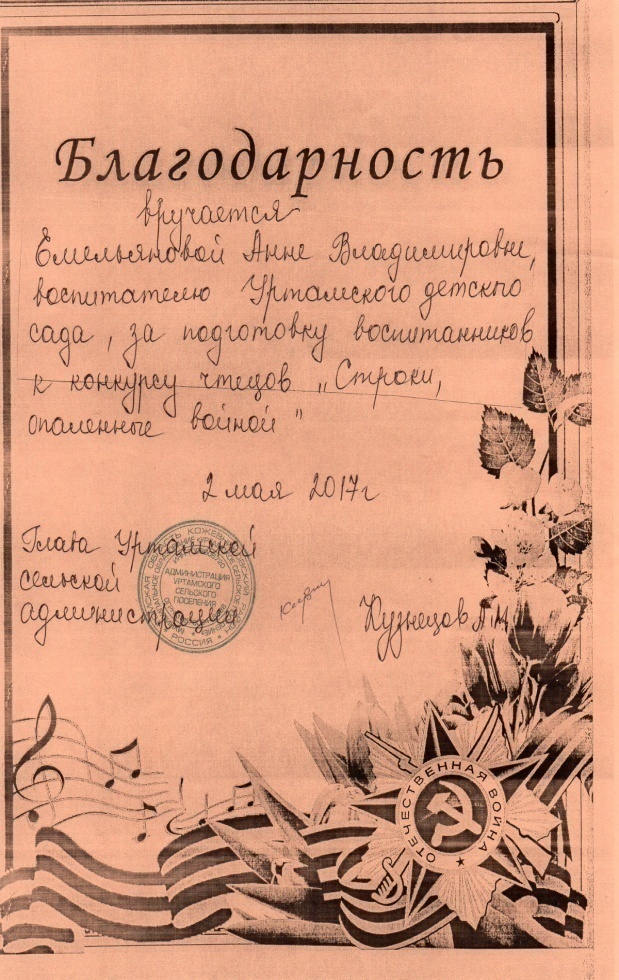 Благодарность
вручается
Емельяновой Анне Владимировне,
воспитателю Уртамского детского
сада, за подготовку воспитанников
к конкурсу чтецов „Строки,
опаленные войной"
2 мая 2017г
Глава Уртамской
сельской
администрации
Кузнецов А.М.
АДМИНИСТРАЦИЯ
УРТАМСКОГО
СЕЛЬСКОГО
ПОСЕЛЕНИЯ
РОССИЯ
ОТЕЧЕСТВЕННАЯ ВОЙНА